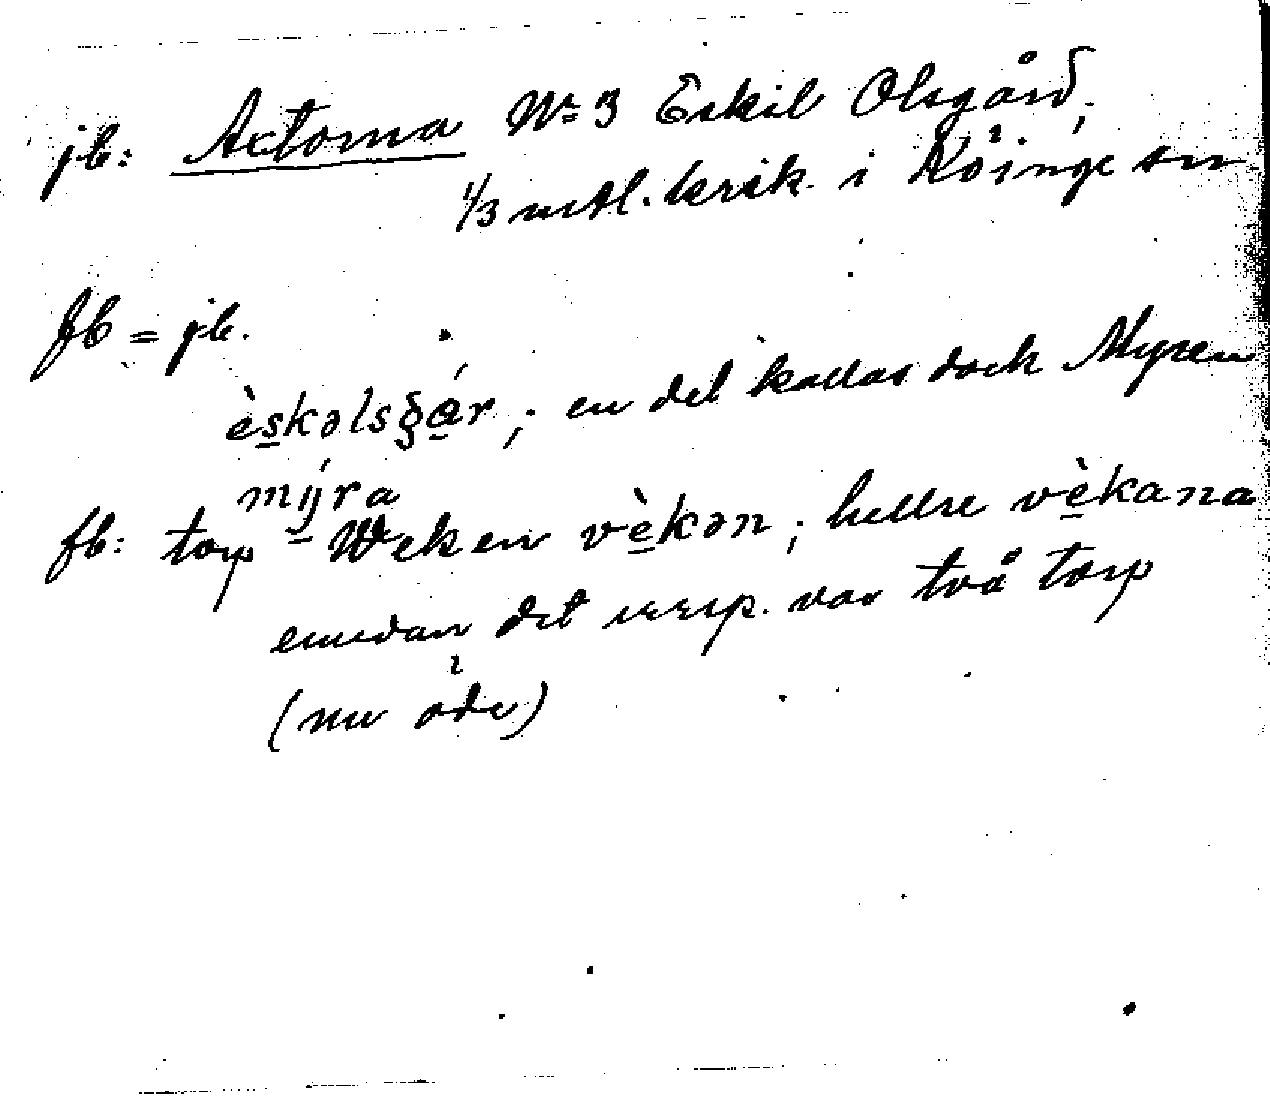 jb: Axtorna No 3 Eskil Olsgård,
1/3 mtl. krsk. i Köinge sn
fb = jb.
èskəlsgár, en del kallas dock Myren
mýra
fb: torp Weken vèkən, hellre vèkana
emedan det urspr. var två torp
(nu öde)